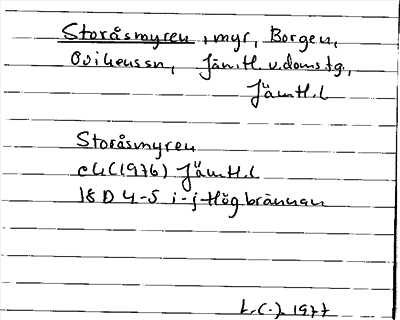 Storåsmyren, myr, Borgen,
Ovikenssn, Jämtl. v. domstg.,
Jämtl. l
Storåsmyren
ek (1976) Jämtl. l
18 D 4-5 i-j Högbrännan
1977